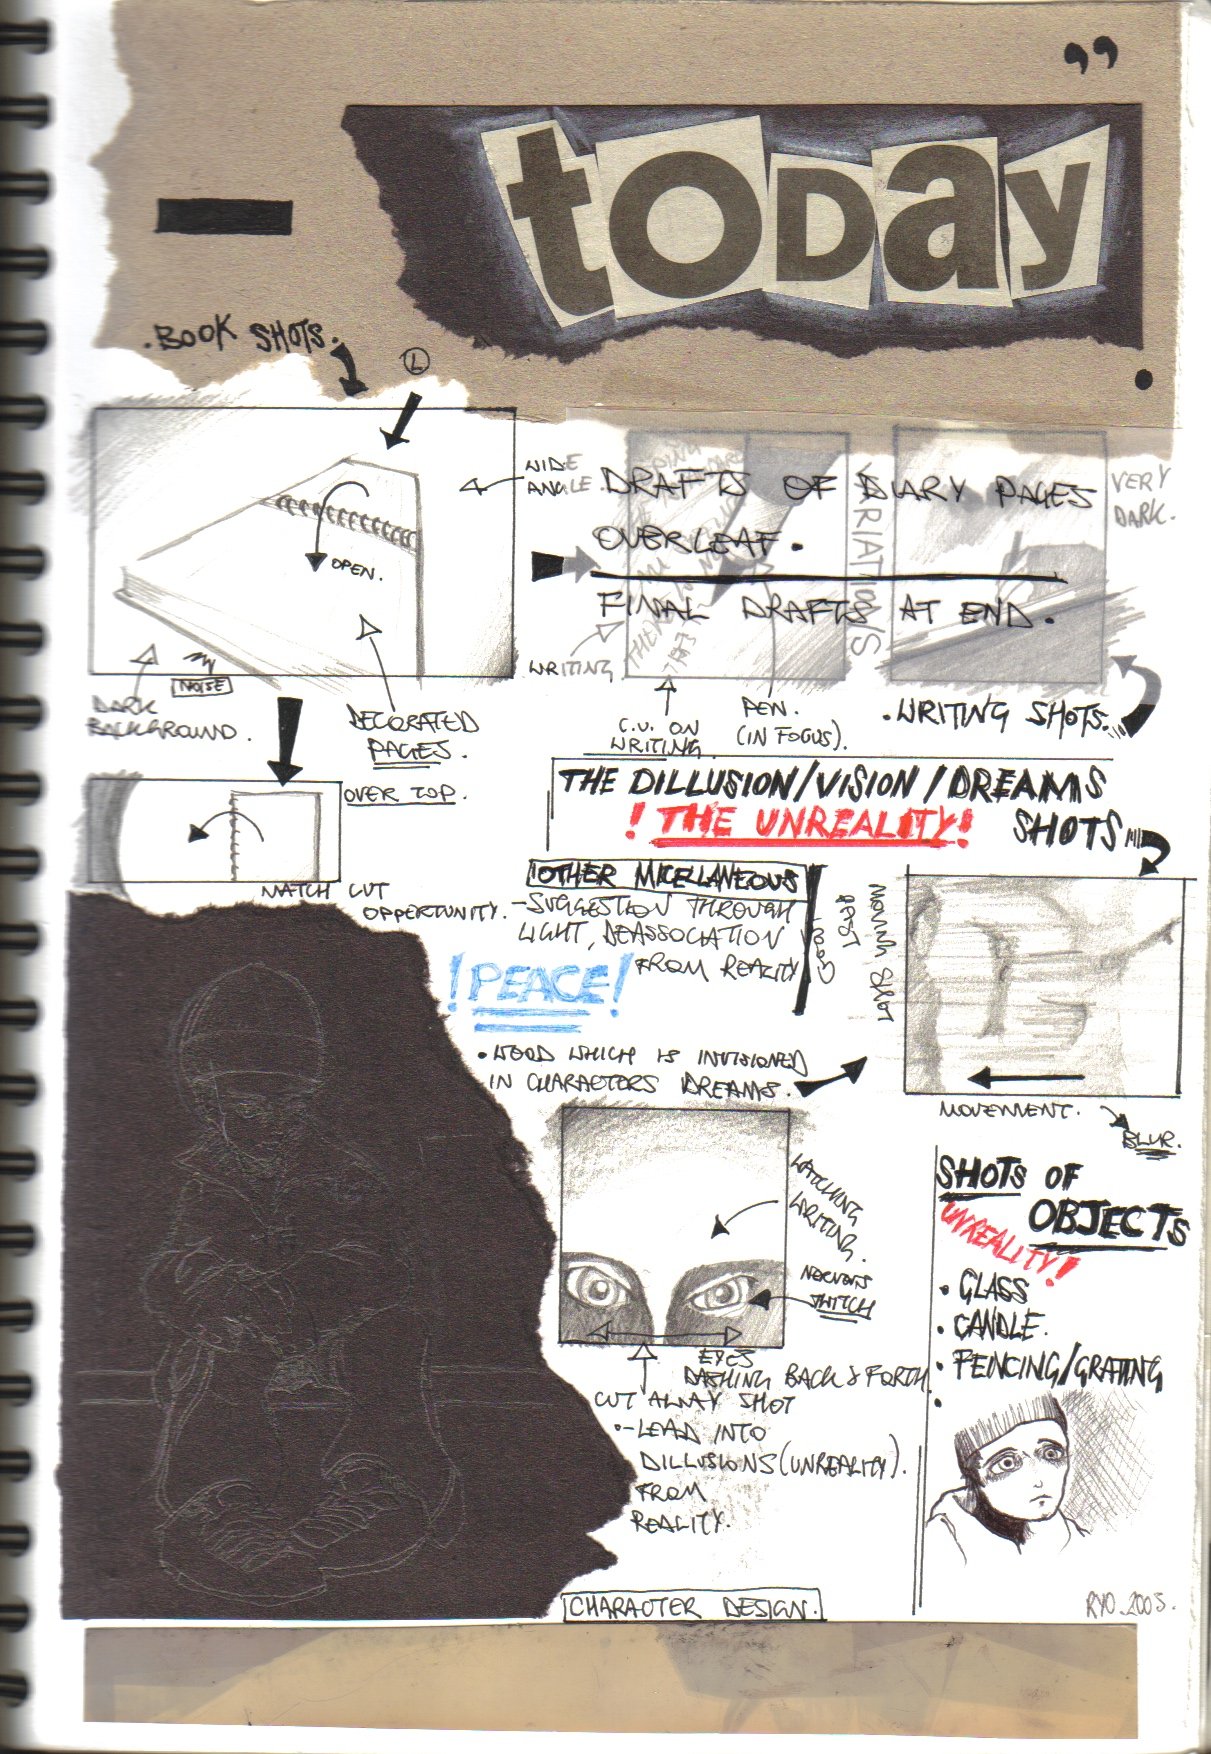 ”
today
.BOOK SHOTS.
L
WIDE
ANGLE.
OPEN.
DRAFTS OF DIARY PAGES
OVERLEAF.
FINAL DRAFTS AT END.
VARIATIONS
VERY
DARK.
WRITING
NOISE
DARK
BACKGROUND.
DECORATED
PAGES.
C.U. ON
WRITING
PEN.
(IN FOCUS).
.WRITING SHOTS.
OVER TOP.
MATCH CUT
OPPERTUNITY.
THE DILLUSION/VISION/DREAMS
! THE UNREALITY! SHOTS
OTHER MICELLANEOUS
-SUGGESTION THROUGH
LIGHT, DEASSOCIATION
FROM REALITY
!PEACE!
MOVING SHOT
PAST
DOOR
• WORD WHICH IS INVISIONED
IN CHARACTORS DREAMS.
MOVEMENT.
BLUR.
WATCHING
WRITING.
NERVOUS
TWITCH
EYES
DASHING BACK & FORTH.
CUT AWAY SHOT
•-LEAD INTO
DILLUSIONS (UNREALITY).
FROM
REALITY.
SHOTS OF
OBJECTS
UNREALITY!
• GLASS
• CANDLE.
• FENCING/GRATING
•
CHARACTER DESIGN.
RYO.2005.